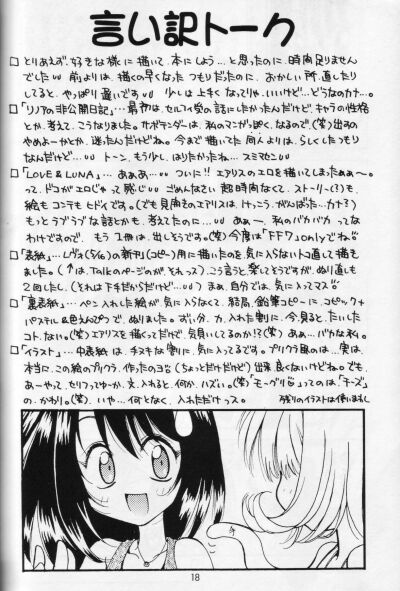 言い訳トーク
□とりあえず、好きな様に描いて、本にしよう…と思ったのに、時間足りません
でしたυυ 前よりは、描くの早くなったつもりだったのに、おかしい所、直したり
してると、やっぱり遅いですυυ 少しは上手くなってりゃ、いいけど…どうなのカナ…。
□「リノアの非公開日記」…最初は、セルフィ受の話にしたかったんだけど、キャラの性格
とか、考えて、こうなりました。サボテンダーは、私のマンガっぽく、なるので(笑)出すの
やめよーかとか、迷ったんだけどね。今まで描いてた同人よりは、らしくしたつもり
なんだけど…υυ トーン、もう少し、はりたかったね…スミマセンυυ
□「LOVE & LUNA」…あぁぁ…υυ ついに!! エアリスのエロを描いてしまったぁぁ〜。
って、ドコがエロじゃって感じυυ ごめんなさい 超時間なくて、ストーリー(?)も、
絵もコンテも ヒドイです。(でも見開きのエアリスは、けっこう、がんばった…カナ?)
もっとラブラブな話とかも、考えてたのに…υυ あぁー、私のバカバカ ってな
わけですので、もう1冊は、出しそうです。(笑)今度は「FF7」onlyでね
□「表紙」…レヴォ(5/6)の新刊(コピー)用に描いたのを、気に入らないトコ直して描き
ました。(↑は、Talkのページのが、それっス)こう言うと楽してそうですが、ぬり直しも
2回したし、(それは下手だからだけど…υυ)まぁ、自分では、気に入ってマス
□「裏表紙」…ペン入れした絵が、気に入らなくて、結局、鉛筆コピーに、コピック+
パステル&色えんぴつで、ぬりました。ずい分、力、入れた割に、今、見ると、たいした
コト、ない。(笑)エアリスを描くってだけで、気負いしてるのか!?(笑)あぁ…バカな私。
□「イラスト」…中表紙は、手ヌキな割に、気に入ってるです。プリクラ風のは…実は、
本当に、この絵のプリクラ、作ったのヨ(ちょっとだけだけど)出来、良くないけどね。でも、
あーやって、セリフってゆーか、文、入れると、何か、ハズい。(笑)「モーグリ」ってのは、「チーズ」
の、かわり。(笑)、いや…何となく、入れただけっス。
残りのイラストは使いまわし
18